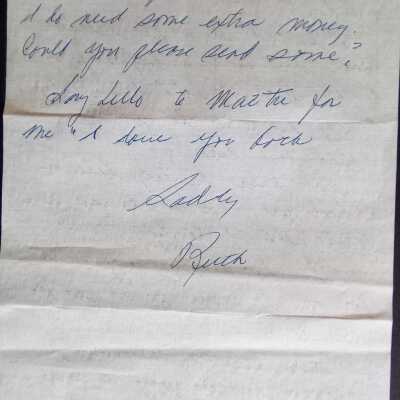 I do need some extra money.
Could you please send some?
Say hello to Mattie for
me "I love you both
Sadly
Ruth